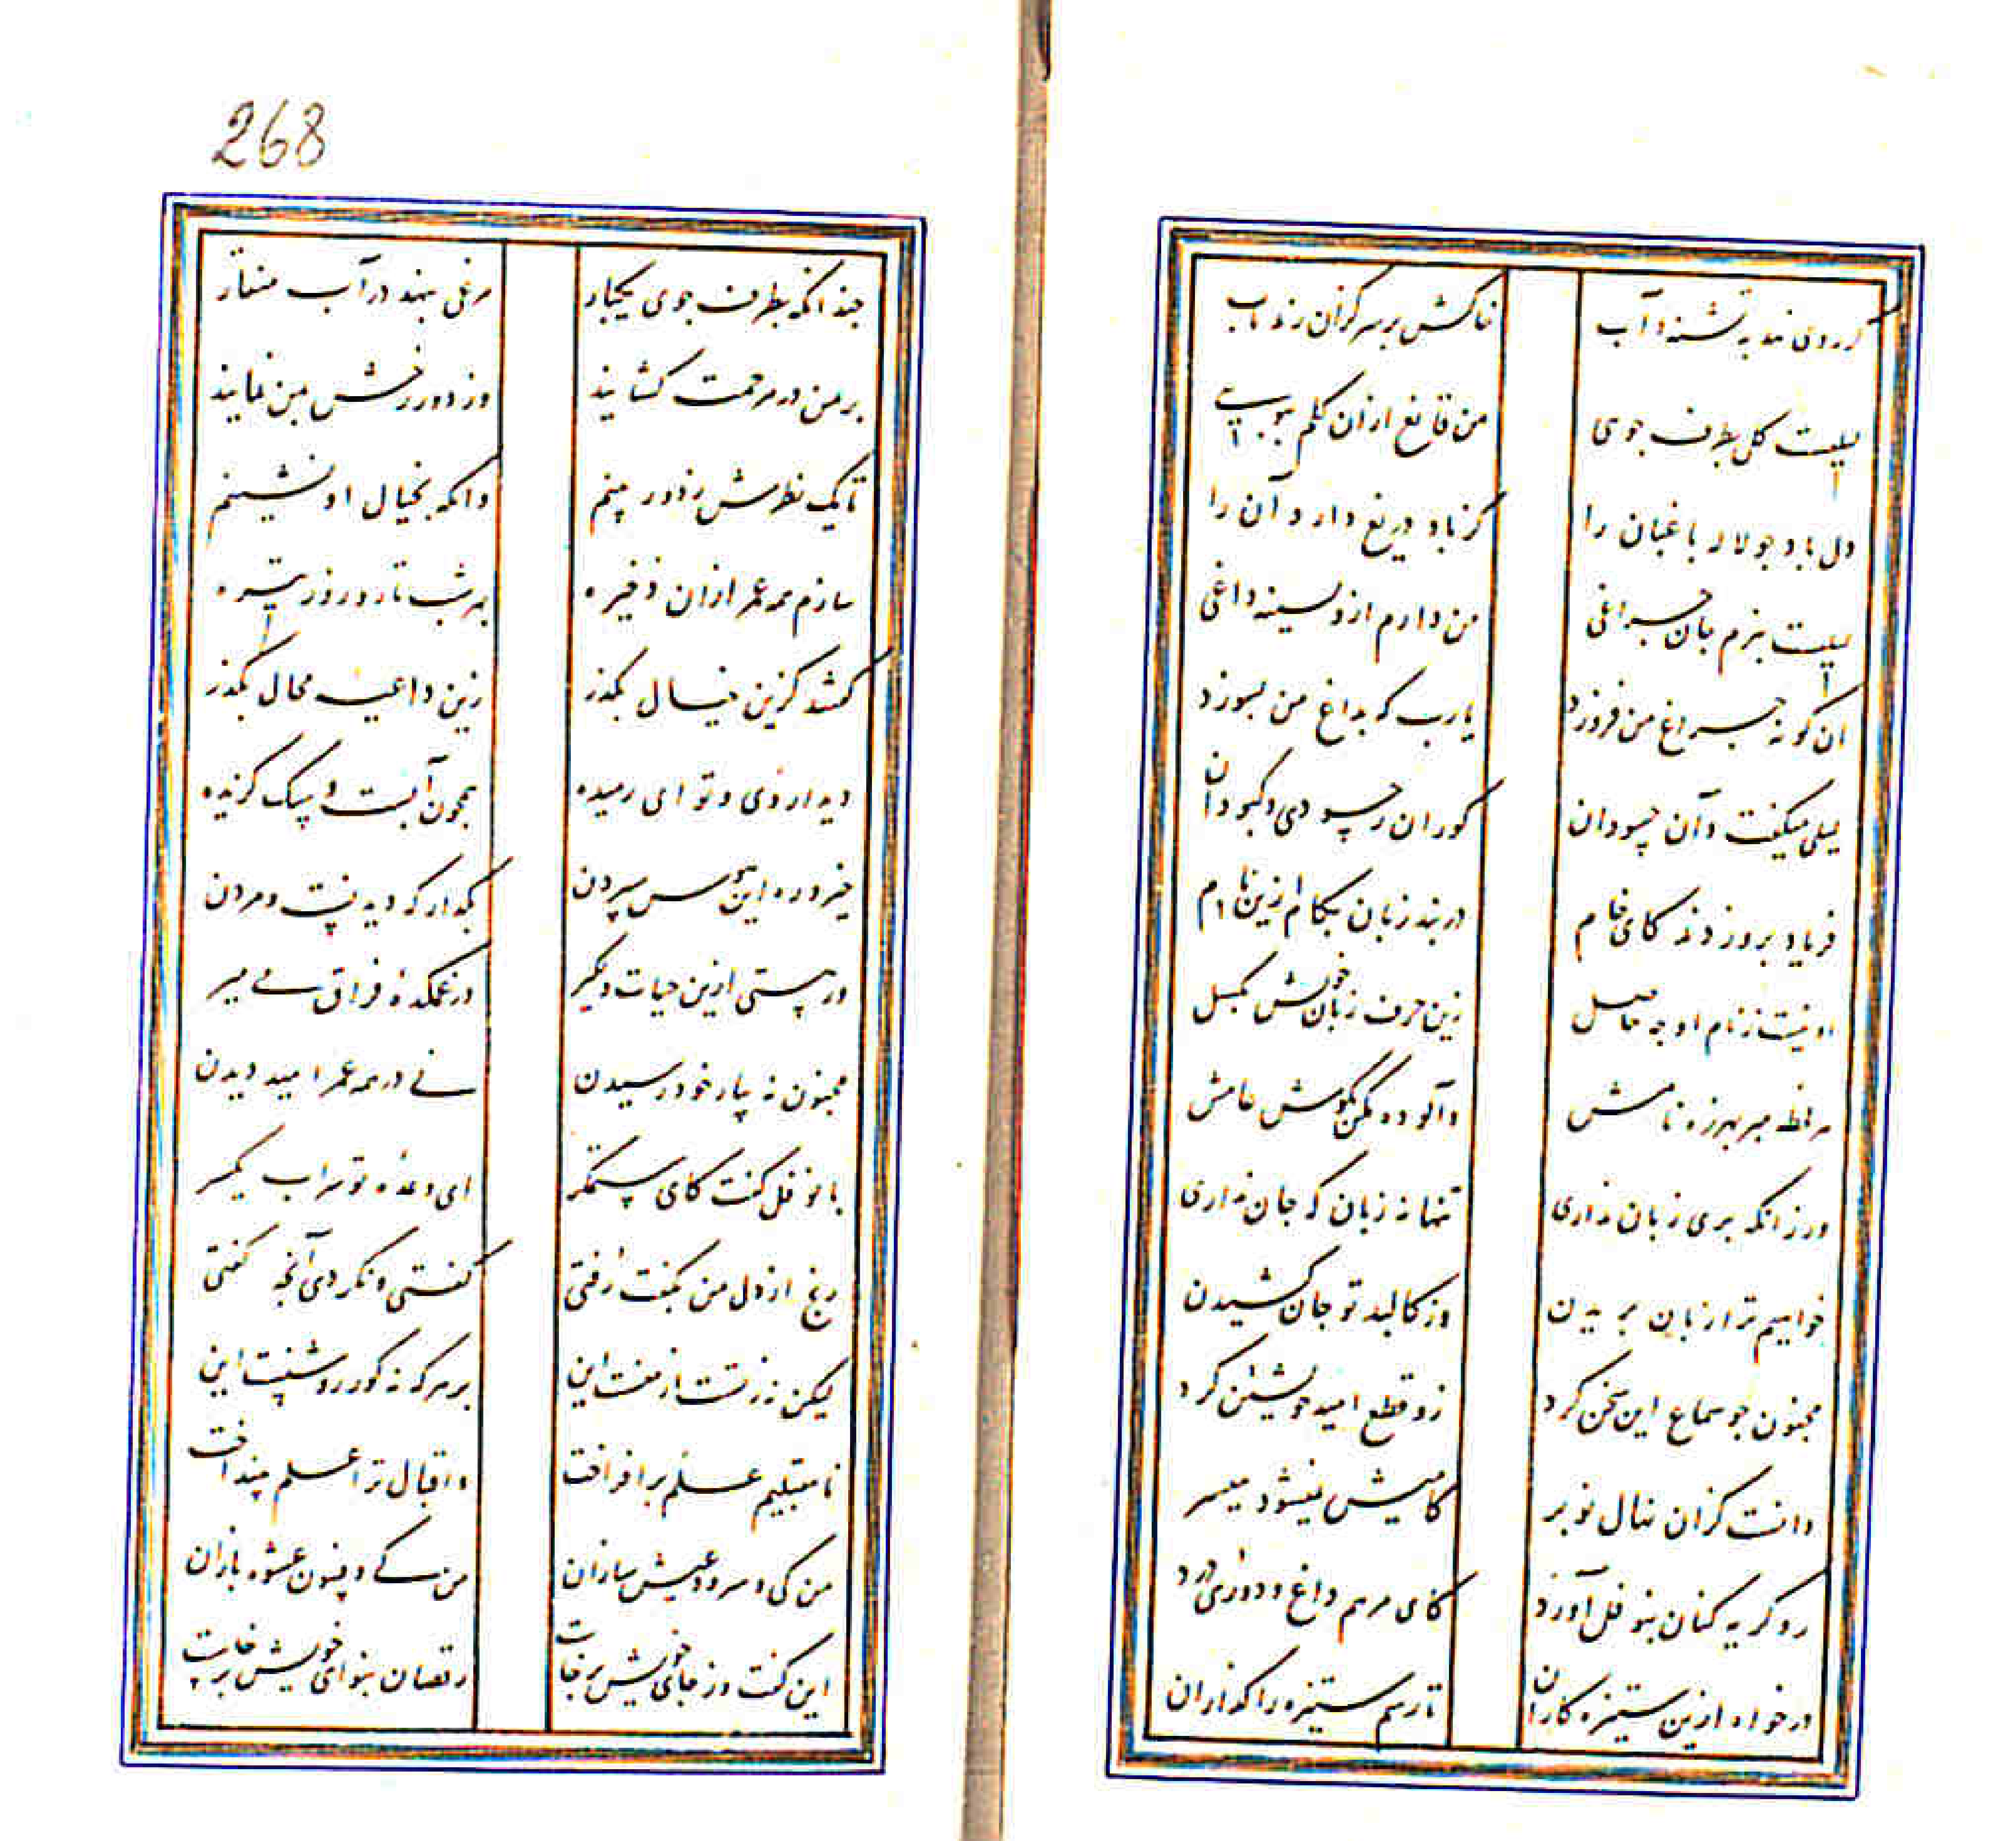 268
گر روی نهد به تشنه آب خاکش بر سر کزان زند تاب
لیلیست گل بطرف جوی من قانع ازان گلم ببوی
دل باد چو لاله باغبان را کز باد دریغ دارد آن را
لیلیست ببزم جان چراغی من دارم ازو بسینه داغی
ان کو نه چراغ من فروزد یارب که بداغ من بسوزد
لیلی میگفت وآن حسودان کوران ز حسودی و کبودان
فریاد برو زدند کای خام در بند زبان بکام ازین نام
او نیست ز نام او چه حاصل زین حرف زبان خویش بگسل
هر لحظه مبر بهرزه نامش وآلوده مکن بگوش عامش
ورزانکه بری زبان نداری تنها نه زبان که جان نداری
خواهیم ترا زبان بریدن وز کالبد تو جان کشیدن
مجنون چو سماع این سخن کرد زو قطع امید خویشتن کرد
دانست کزان نهال نوبر کامیش نمیشود میسر
رو گریه کنان بنوفل آورد کای مرهم داغ و دوای درد
درخواه ازین ستیزه کاران تا رسم ستیزه را گذاران
چندانکه بطرف جوی یکبار مرغی بنهد در آب منقار
بر من در مرحمت گشایند وز دور رخش بمن نمایند
تا یک نظرش ز دور بینم وانگه بخیال او نشینم
سازم همه عمر ازان ذخیره بهر شب تار و روز تیره
گفتند کزین خیال بگذر زین داعیه محال بگذر
دیدار وی و تو ای رمیده همچون آبست و سگ گزیده
خیز و ره این هوس سپردن بگذار که دیدنست و مردن
در پستی ازین حیات دلگیر در غمکده فراق می میر
مجنون نه بیار خود رسیدن نی در همه عمر امید دیدن
با نوفل گفت کای ستمگر ای وعده تو سراب یکسر
رنج از دل من بگفت رفتی گفتی و نکردی آنچه گفتی
لیکن نه ز تست از منست این بر هر که نه کور روشنست این
نامقبلیم علم برافراخت واقبال ترا علم بینداخت
من کی و سرود عیش سازان من کی و فسون عشوه بازان
این گفت وز جای خویش برخاست رقصان بنوای خویش برخاست